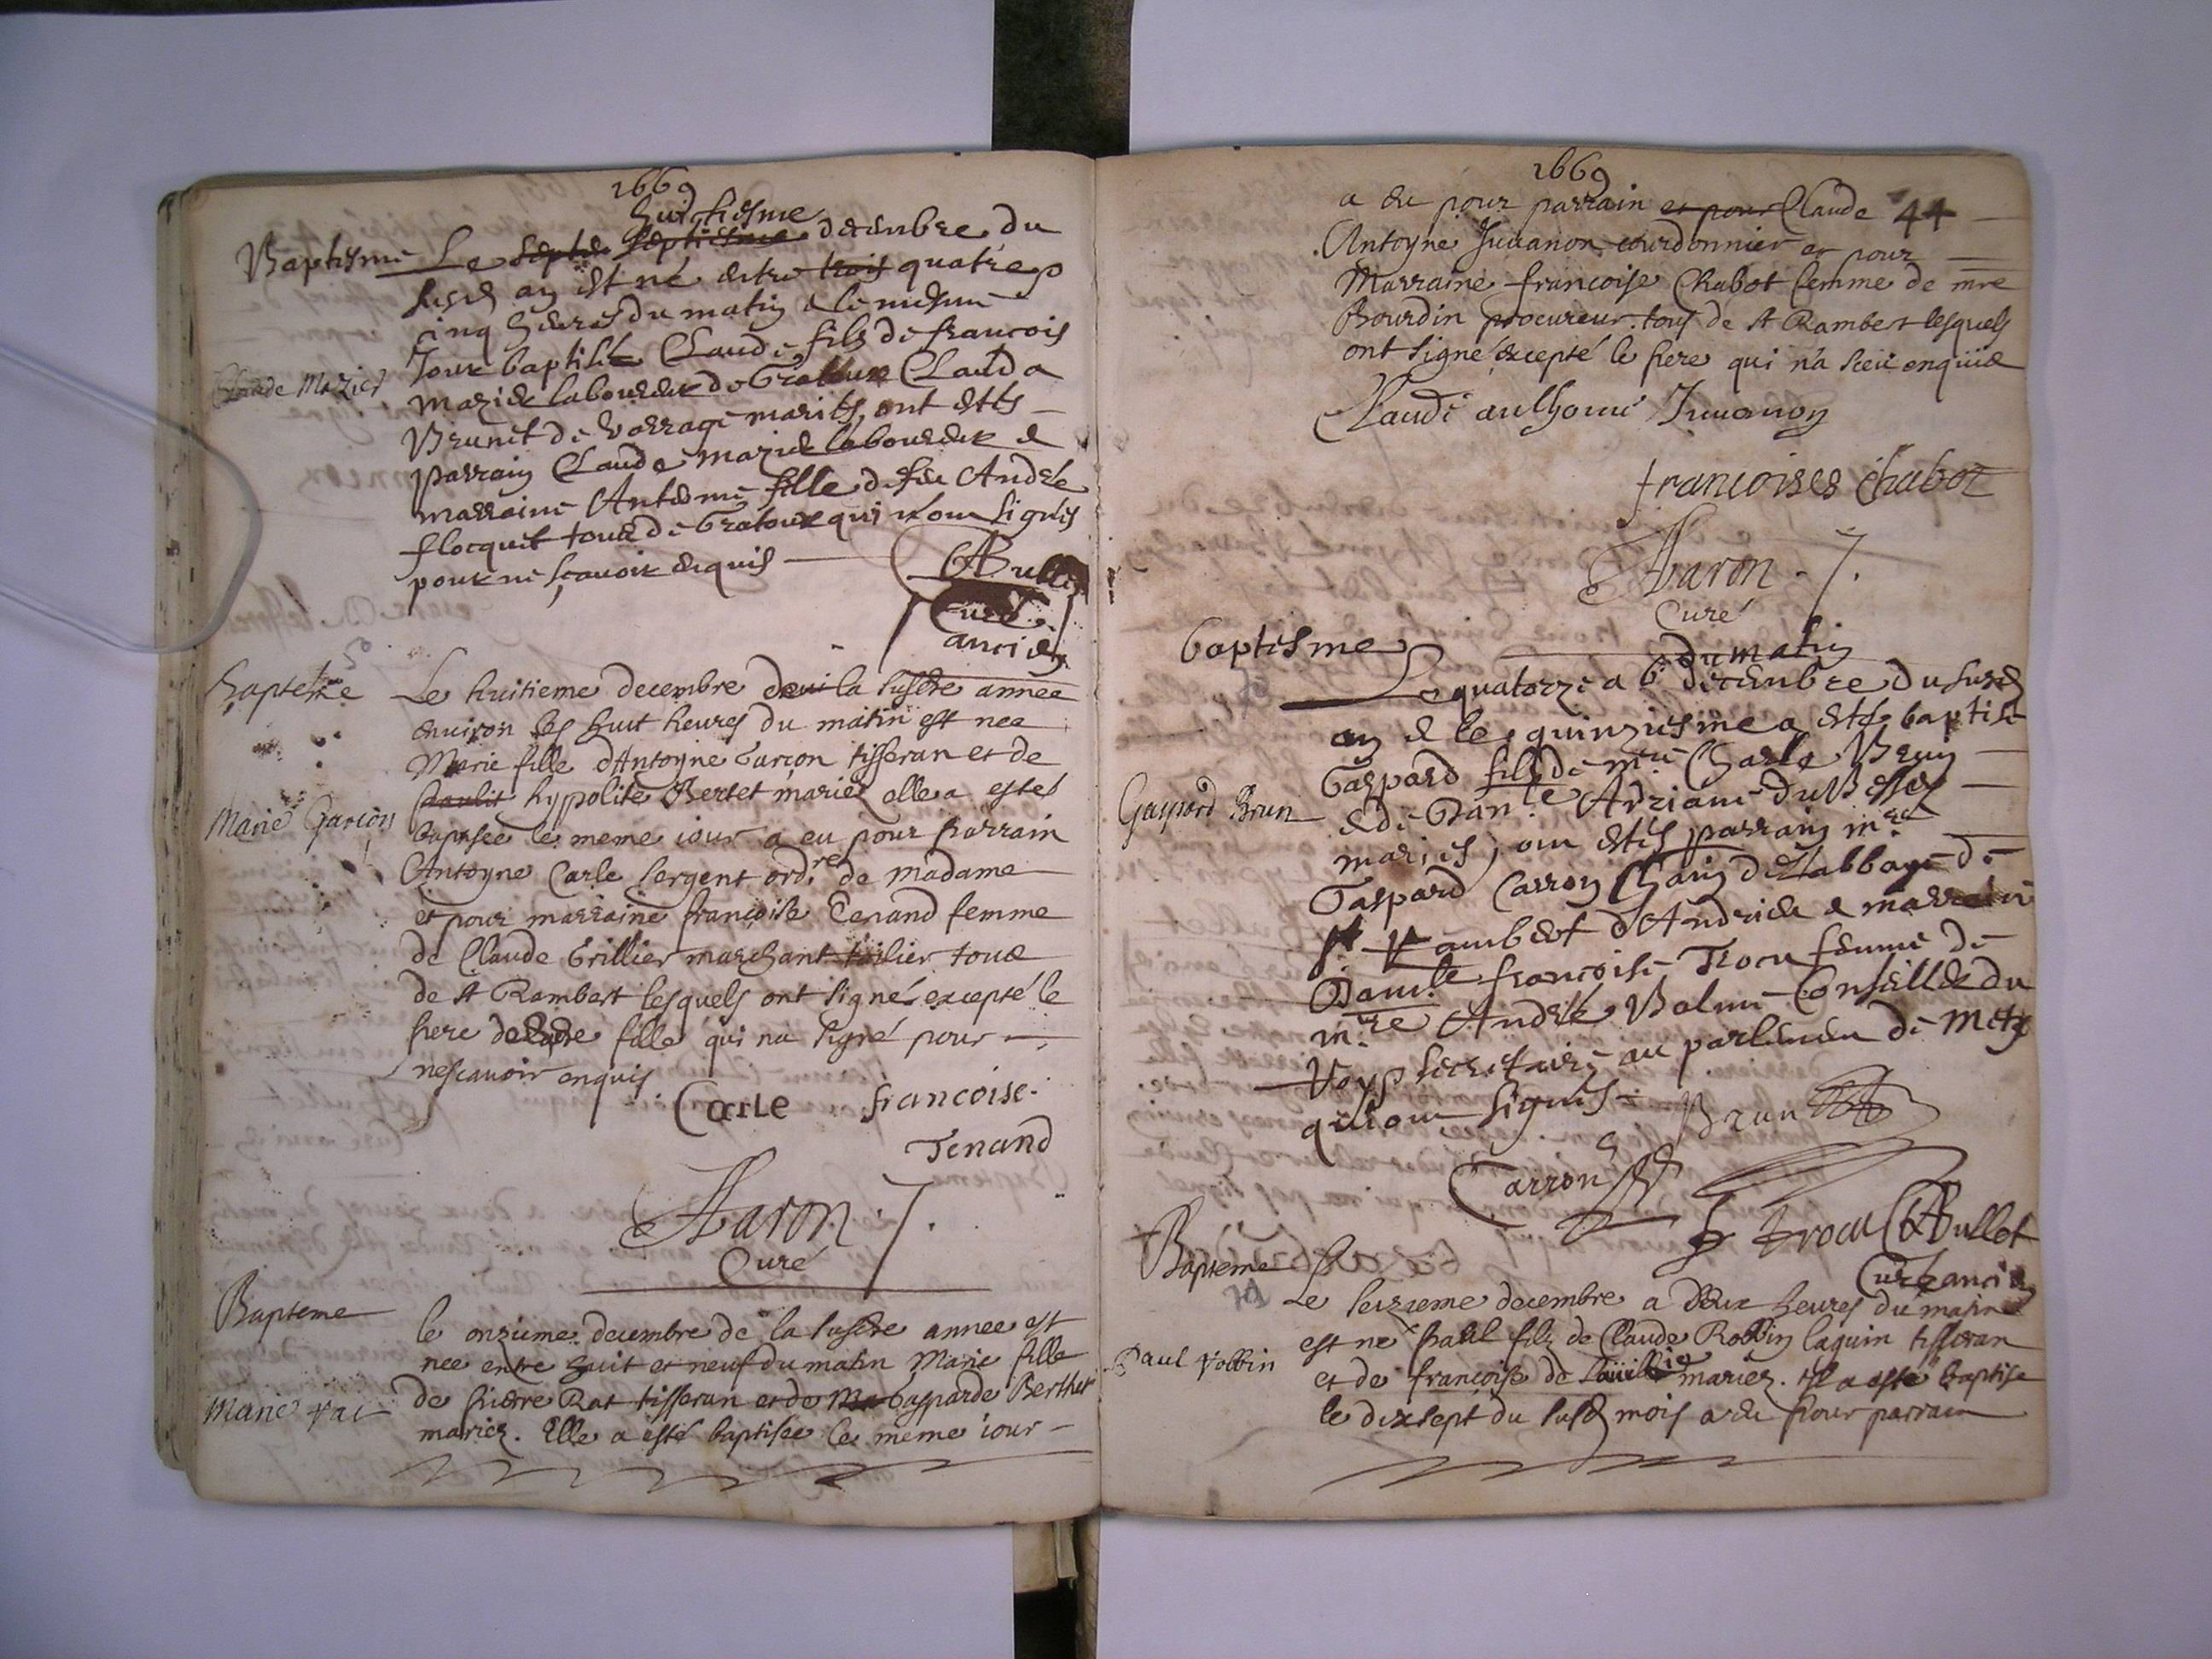 1669
huictiesme
Baptisme Le septie septiesme decembre du
susd an est né entre trois quatre
cinq heures du matin & le mesme
Claude Mazier
Jour baptisé Claude fils de francois
mazier laboureur de Gratoux Clauda
Brunet de mariés, ont estés
parrain Claude mazier laboureur &
marraine Antoeme fille de feu André
flocquet tous de Gratoux qui n'ont signés
pour ne scavoir enquis
Bullot
Curé
ancien
Bapteme
Le huitieme decembre de la susdte annee
environ les huit heures du matin est nee
Marie fille d'Antoyne Garçon tisseran et de
hypolite Bertet mariez elle a esté
Marie Garcon
baptisee le meme iour a eu pour parrain
Antoyne Carle sergent ordre de madame
et pour marraine françoise Tenand femme
de Claude Grillier marchant toilier tous
de st Rambert lesquels ont signé excepté le
pere de ladte fille qui na signé pour
nescavoir enquis
Carle francoise
Tenand
Aaron J.
Curé
Bapteme
le onzieme decembre de la susdte annee est
nee entre huit et neuf du matin Marie fille
Marie rat
de pierre Rat tisseran et de Ma Gasparde Berthet
mariez. Elle a esté baptisee le meme iour
1669
44
a eu pour parrain et pour Claude
Antoyne Juuanon courdonnier et pour
Marraine francoise Chabot femme de mre
Bourdin procureur. tous de st Rambert lesquels
ont signé excepté le pere qui n'a sceu enquis
Claude anthoine Juuanon
francoises Chabot
Aaron J.
Curé
baptesme
du matin
Le quatorze a 6 decembre du susd
an & le quinziesme a esté baptisé
Gaspard fils de mre Charle Brun
Gaspard Brun
& de Dam.le Adriane du
mariés, ont estés parrain mre
Gaspard Carron Chan de Labbaye de
st Rambert d'Andrieu & marraine
Damlle francoise Trocu femme de
mre André Balme Conseiller du
Roy secretaire au parlemen de Metz
qui ont signés
Brun
Carron
f trocu Bullot
Curé ancien
Bapteme
Le seizieme decembre a deux heures du matin
est né paul filz de Claude Robbin laguin tisseran
Paul robbin
et de françoise de mariez. il a esté baptise
le dixsept du susd mois a eu pour parrain